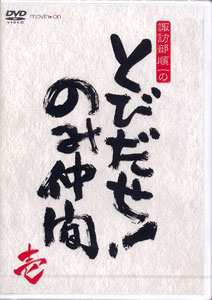 DVD
VIDEO
movin●on
諏訪部順一の
とびだせ!
のみ仲間
壱